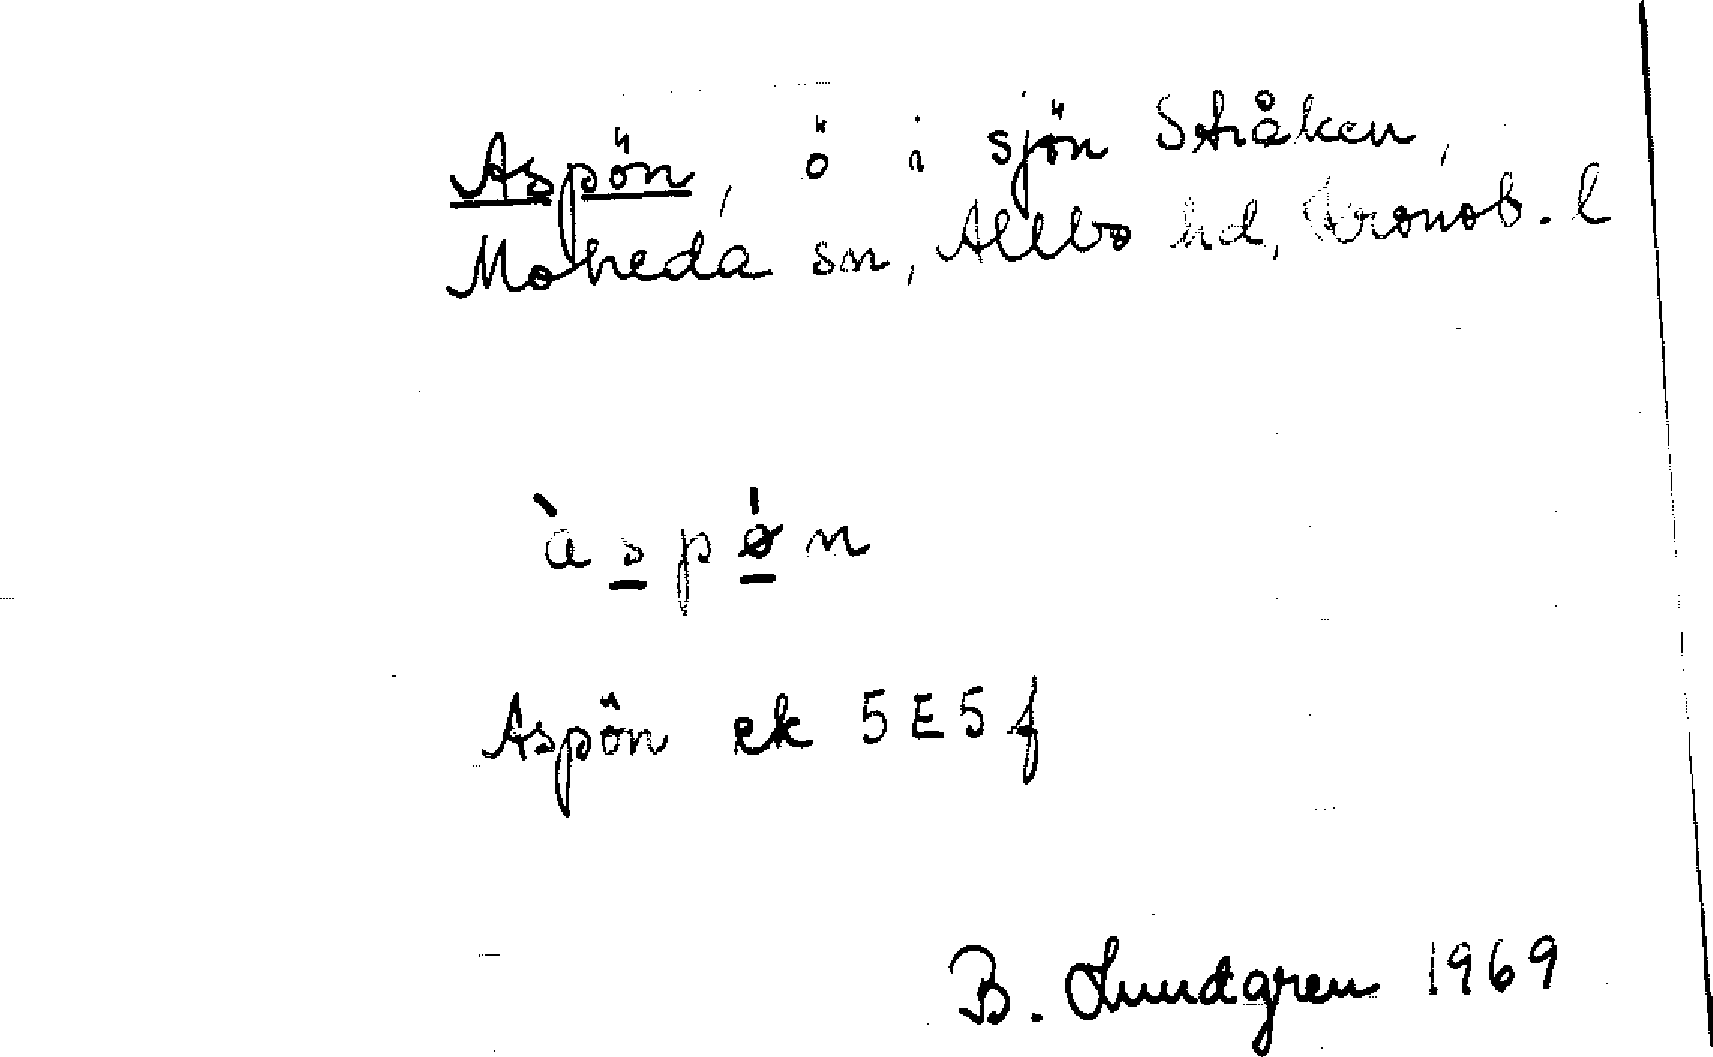 Aspön, ö i sjön Stråken,
Moheda sn, Allbo hd, Kronob. l
àspø̀n
Aspön ek 5E5f
B. Lundgren 1969